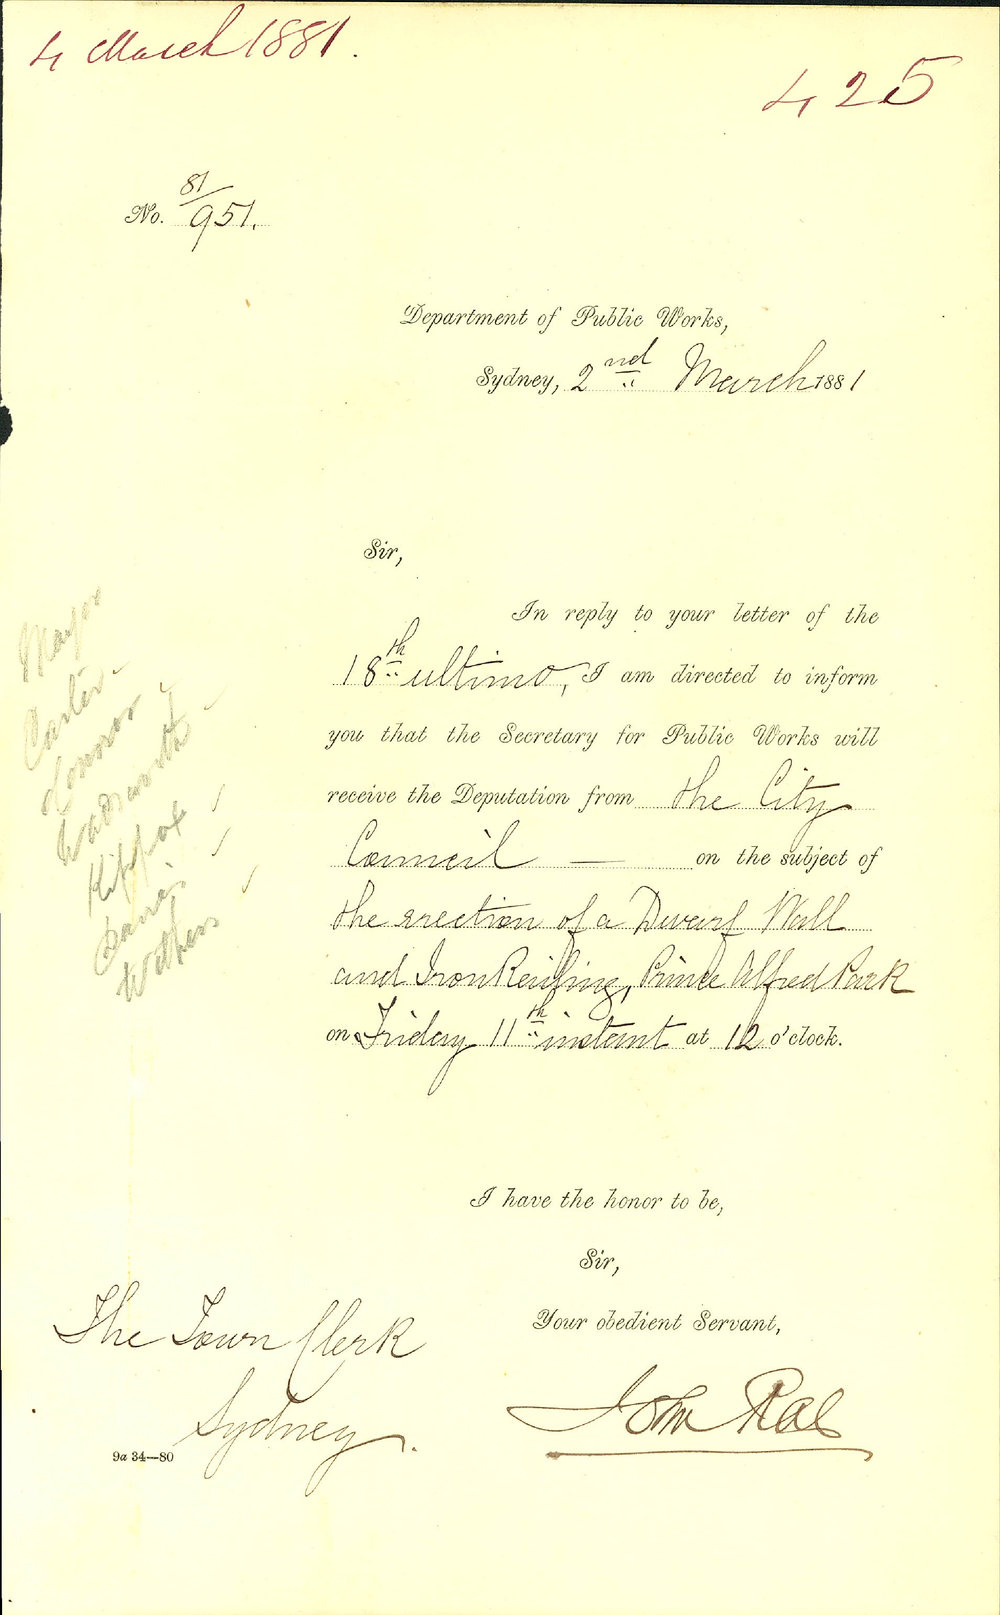 4 March 1881.
425
No. 81/951.
Department of Public Works,
Sydney, 2nd March 1881
Sir,
In reply to your letter of the
18th ultimo, I am directed to inform
you that the Secretary for Public Works will
receive the Deputation from the City
Council — on the subject of
the erection of a Dwarf Wall
and Iron Railing, Prince Alfred Park
on Friday 11th instant at 12 o'clock.
Mayor
Carter
Wadsworth
Kippax
Davis
Withers
I have the honor to be,
Sir,
Your obedient Servant,
John Rae
The Town Clerk
Sydney.
9a 34—80